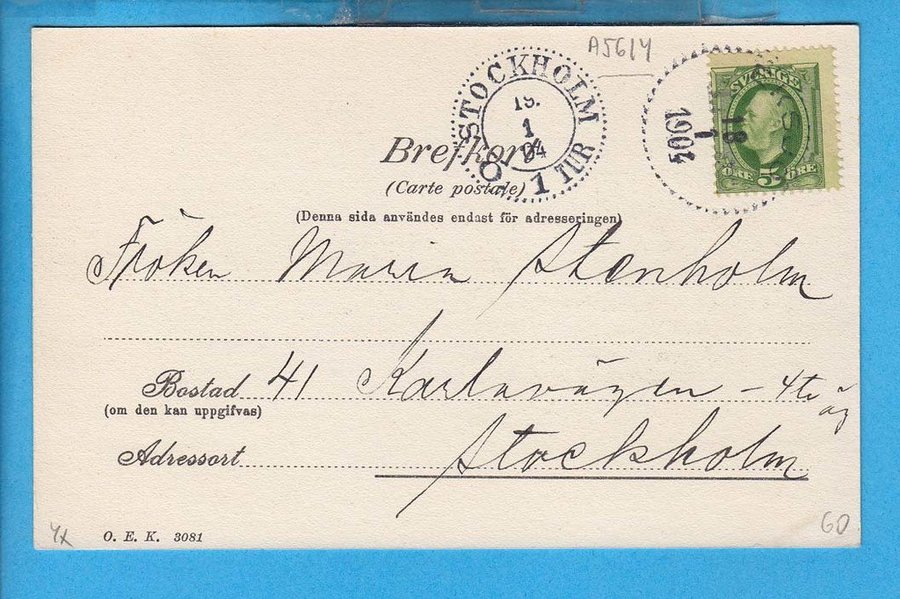 A5614
STOCKHOLM
19.
1
04
Ö. 1 TUR
18
1
1904
SVERIGE
ÖRE 5 ÖRE
Brefkort
(Carte postale)
(Denna sida användes endast för adresseringen)
Fröken Maria Stenholm
Bostad 41 Karlavägen - 4tr ög
(om den kan uppgifvas)
Adressort Stockholm
4x
O. E. K. 3081
60